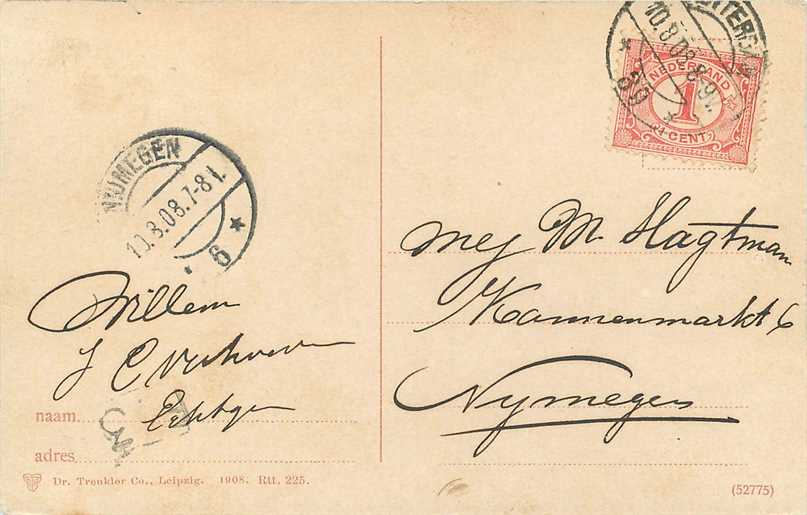 ROTTERDAM
10.8.08.8-9V.
NEDERLAND
1
1 CENT
NIJMEGEN
10.8.08.7-8 V.
6
Mej M. Hagtman
Kannenmarkt 6
Nymegen
Willem
naam
adres
Dr. Trenkler Co., Leipzig. 1908. Rtt. 225.
(52775)